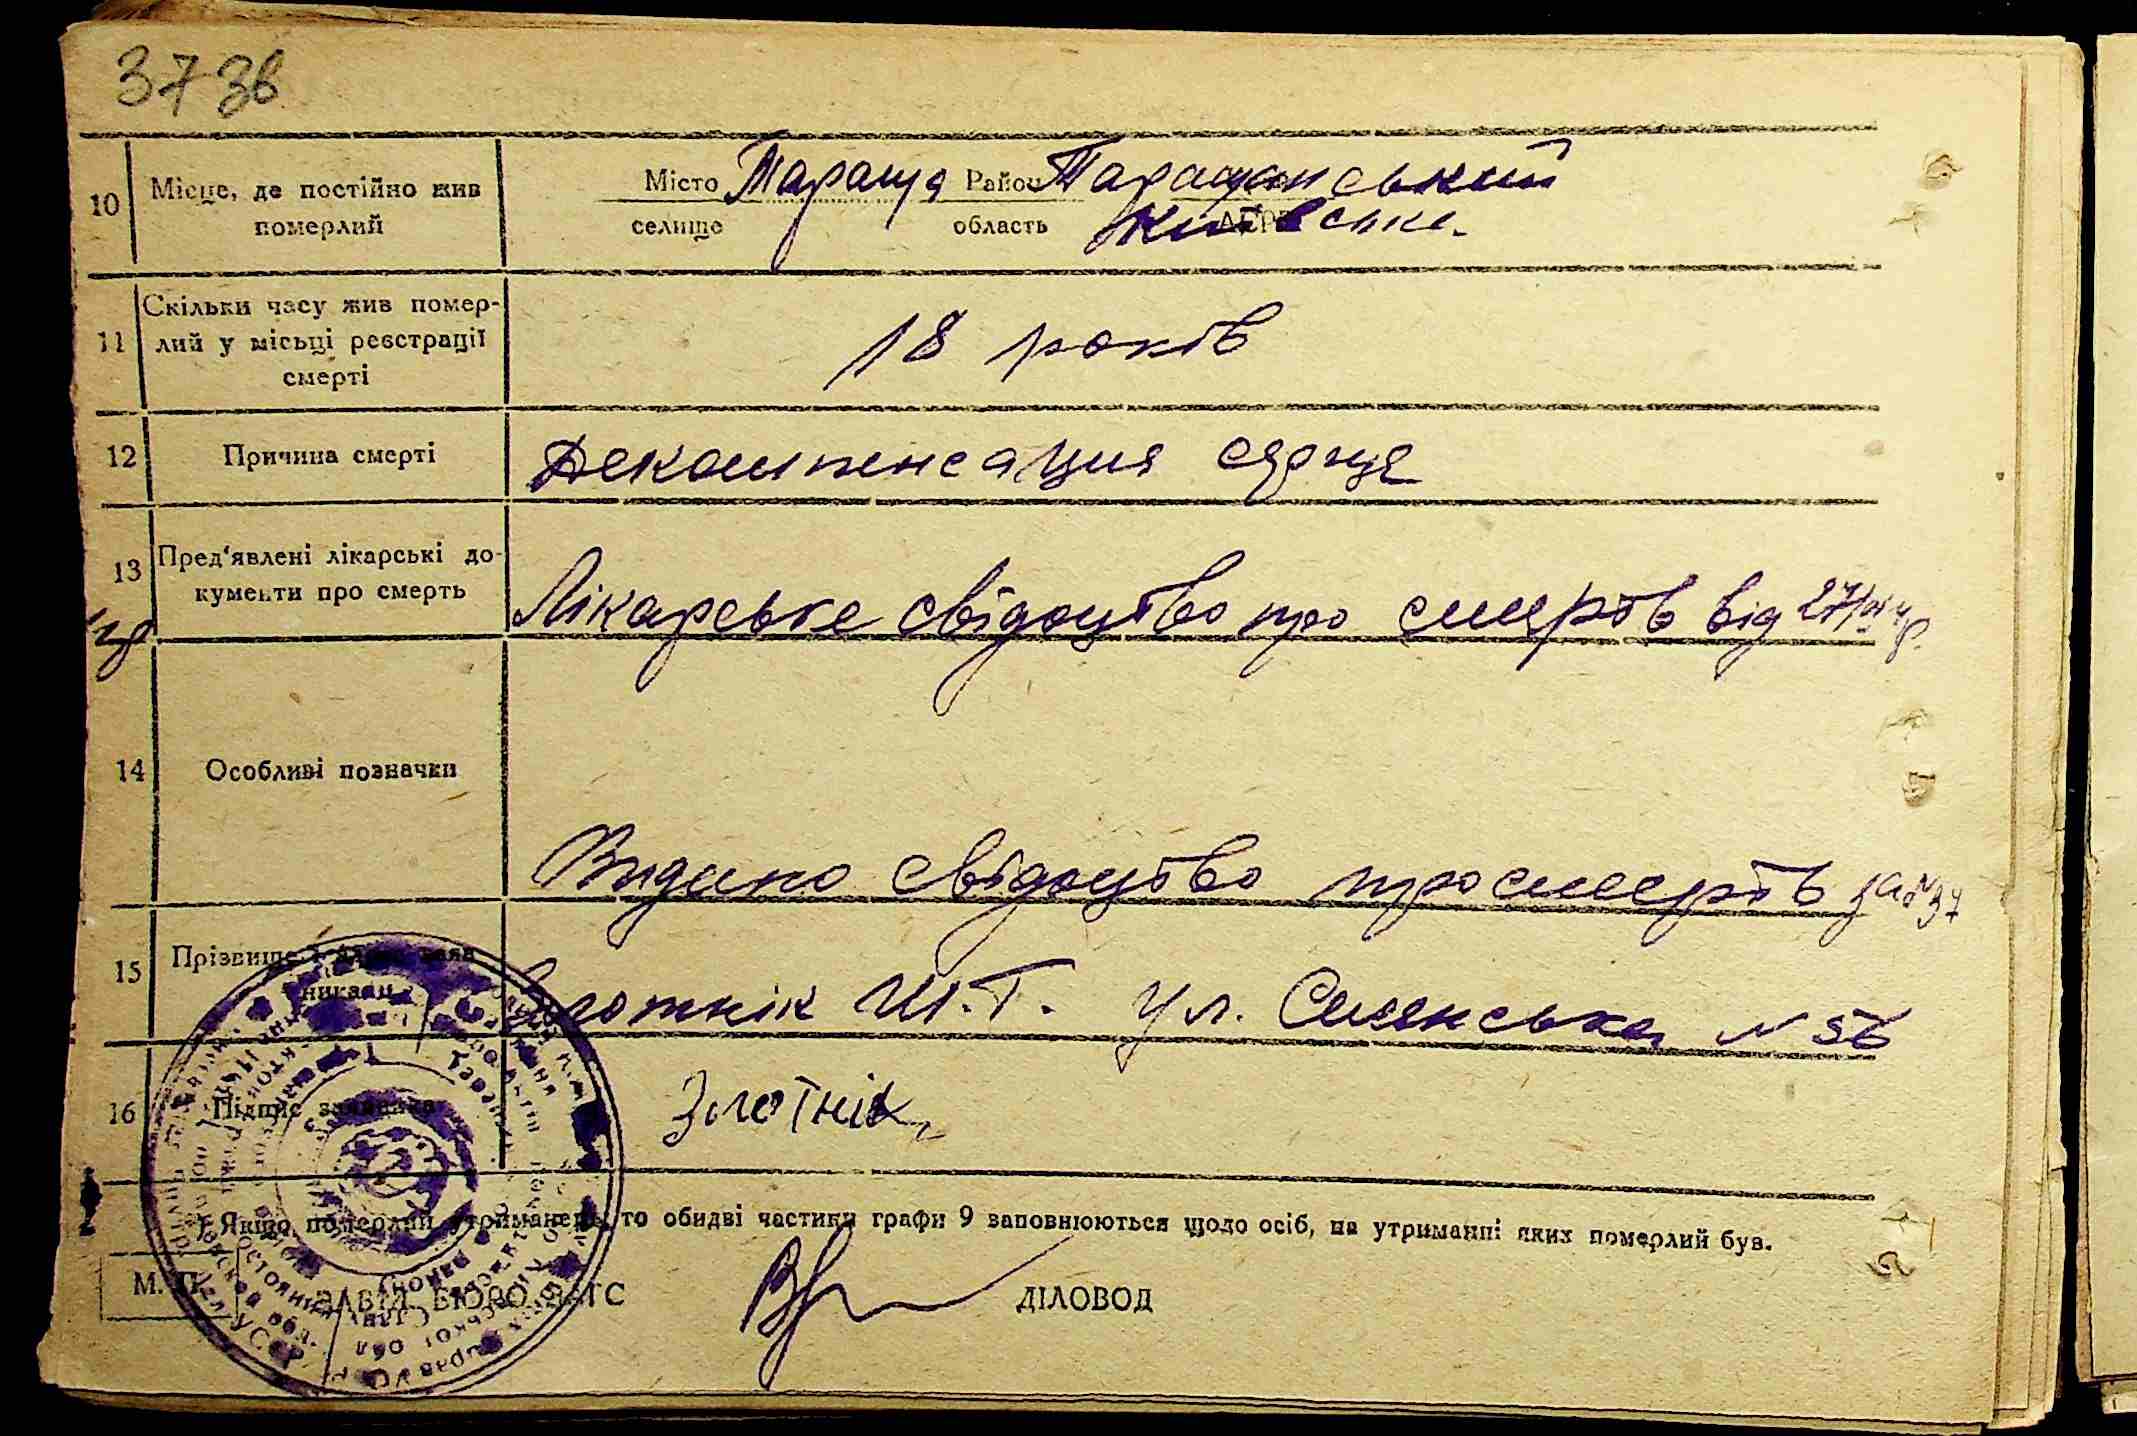 37 зв
10 Місце, де постійно жив
померлий
Місто Тараща Район Таращанський
селище область Київська
11 Скільки часу жив помер-
лий у місьці реєстрації
смерті
18 років
12 Причина смерті Декомпенсация сердця
13 Пред'явлені лікарські до-
кументи про смерть
Лікарське свідоцтво про смерть від 27/
14 Особливі позначки
Видано свідоцтво про смерть за № 37
15 Прізвище і адреса заяв
никали
Золотнік Ш. Т. ул. Сеянська N 56
16 Підпис заявника Золотнік
*) Якщо померлий утриманець, то обидві частини графи 9 заповнюються щодо осіб, на утриманні яких померлий був.
М. П. ЗАВІД. БЮРО ЗАГС ДІЛОВОД